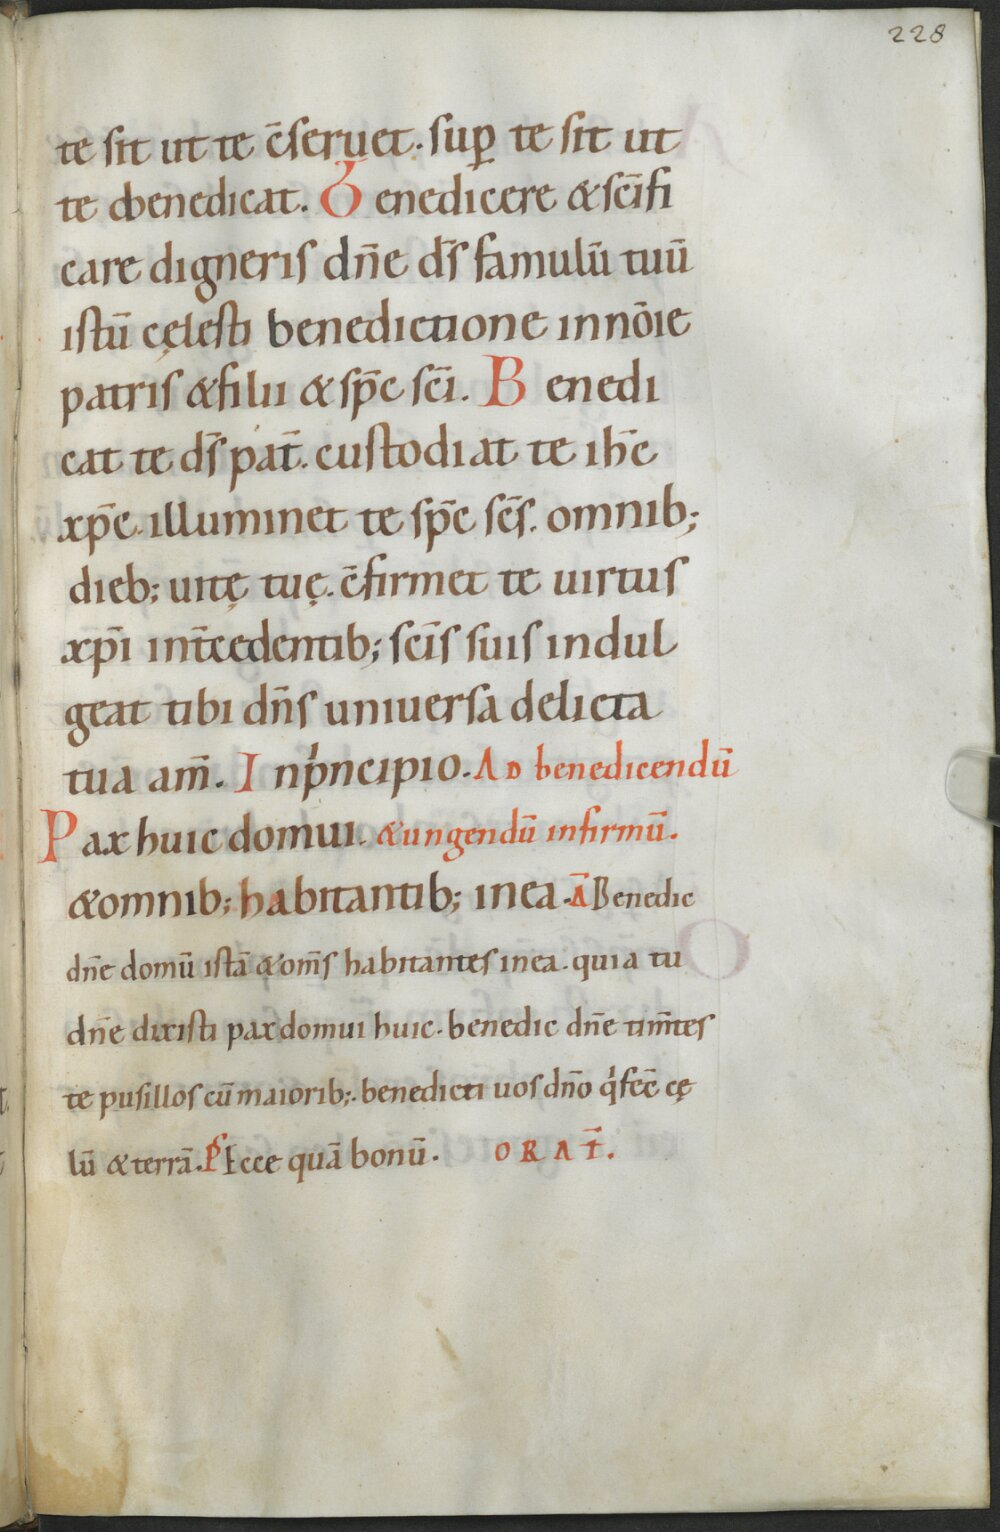 228
te sit ut te c̄seruet. sup̱ te sit ut
te benedicat. Benedicere & sc̄ifi
care digneris dn̄e ds̄ famulū tuū
istū cęlesti benedictione in nōie
patris & filii & sp̄c sc̄i. Benedi
cat te ds̄ pat̄. custodiat te ihc̄
xp̄c. illuminet te sp̄c sc̄s. omnib;
dieb; uitę tuę. c̄firmet te uirtus
xp̄i int̄cedentib; sc̄is suis indul
geat tibi dn̄s uniuersa delicta
tua am̄. In pͥncipio. Ad benedicendū
Pax huic domui. & ungendū infirmū.
& omnib; habitantib; in ea. Ā Benedic
dn̄e domū istā & om̄s habitantes in ea. quia tu
dn̄e dixisti pax domui huic. benedic dn̄e tim̄tes
te pusillos cū maiorib;. benedicti uos dn̄o qͥ fec̄ cę
lū & terrā. Ps Ecce quā bonū. ORAT̄.